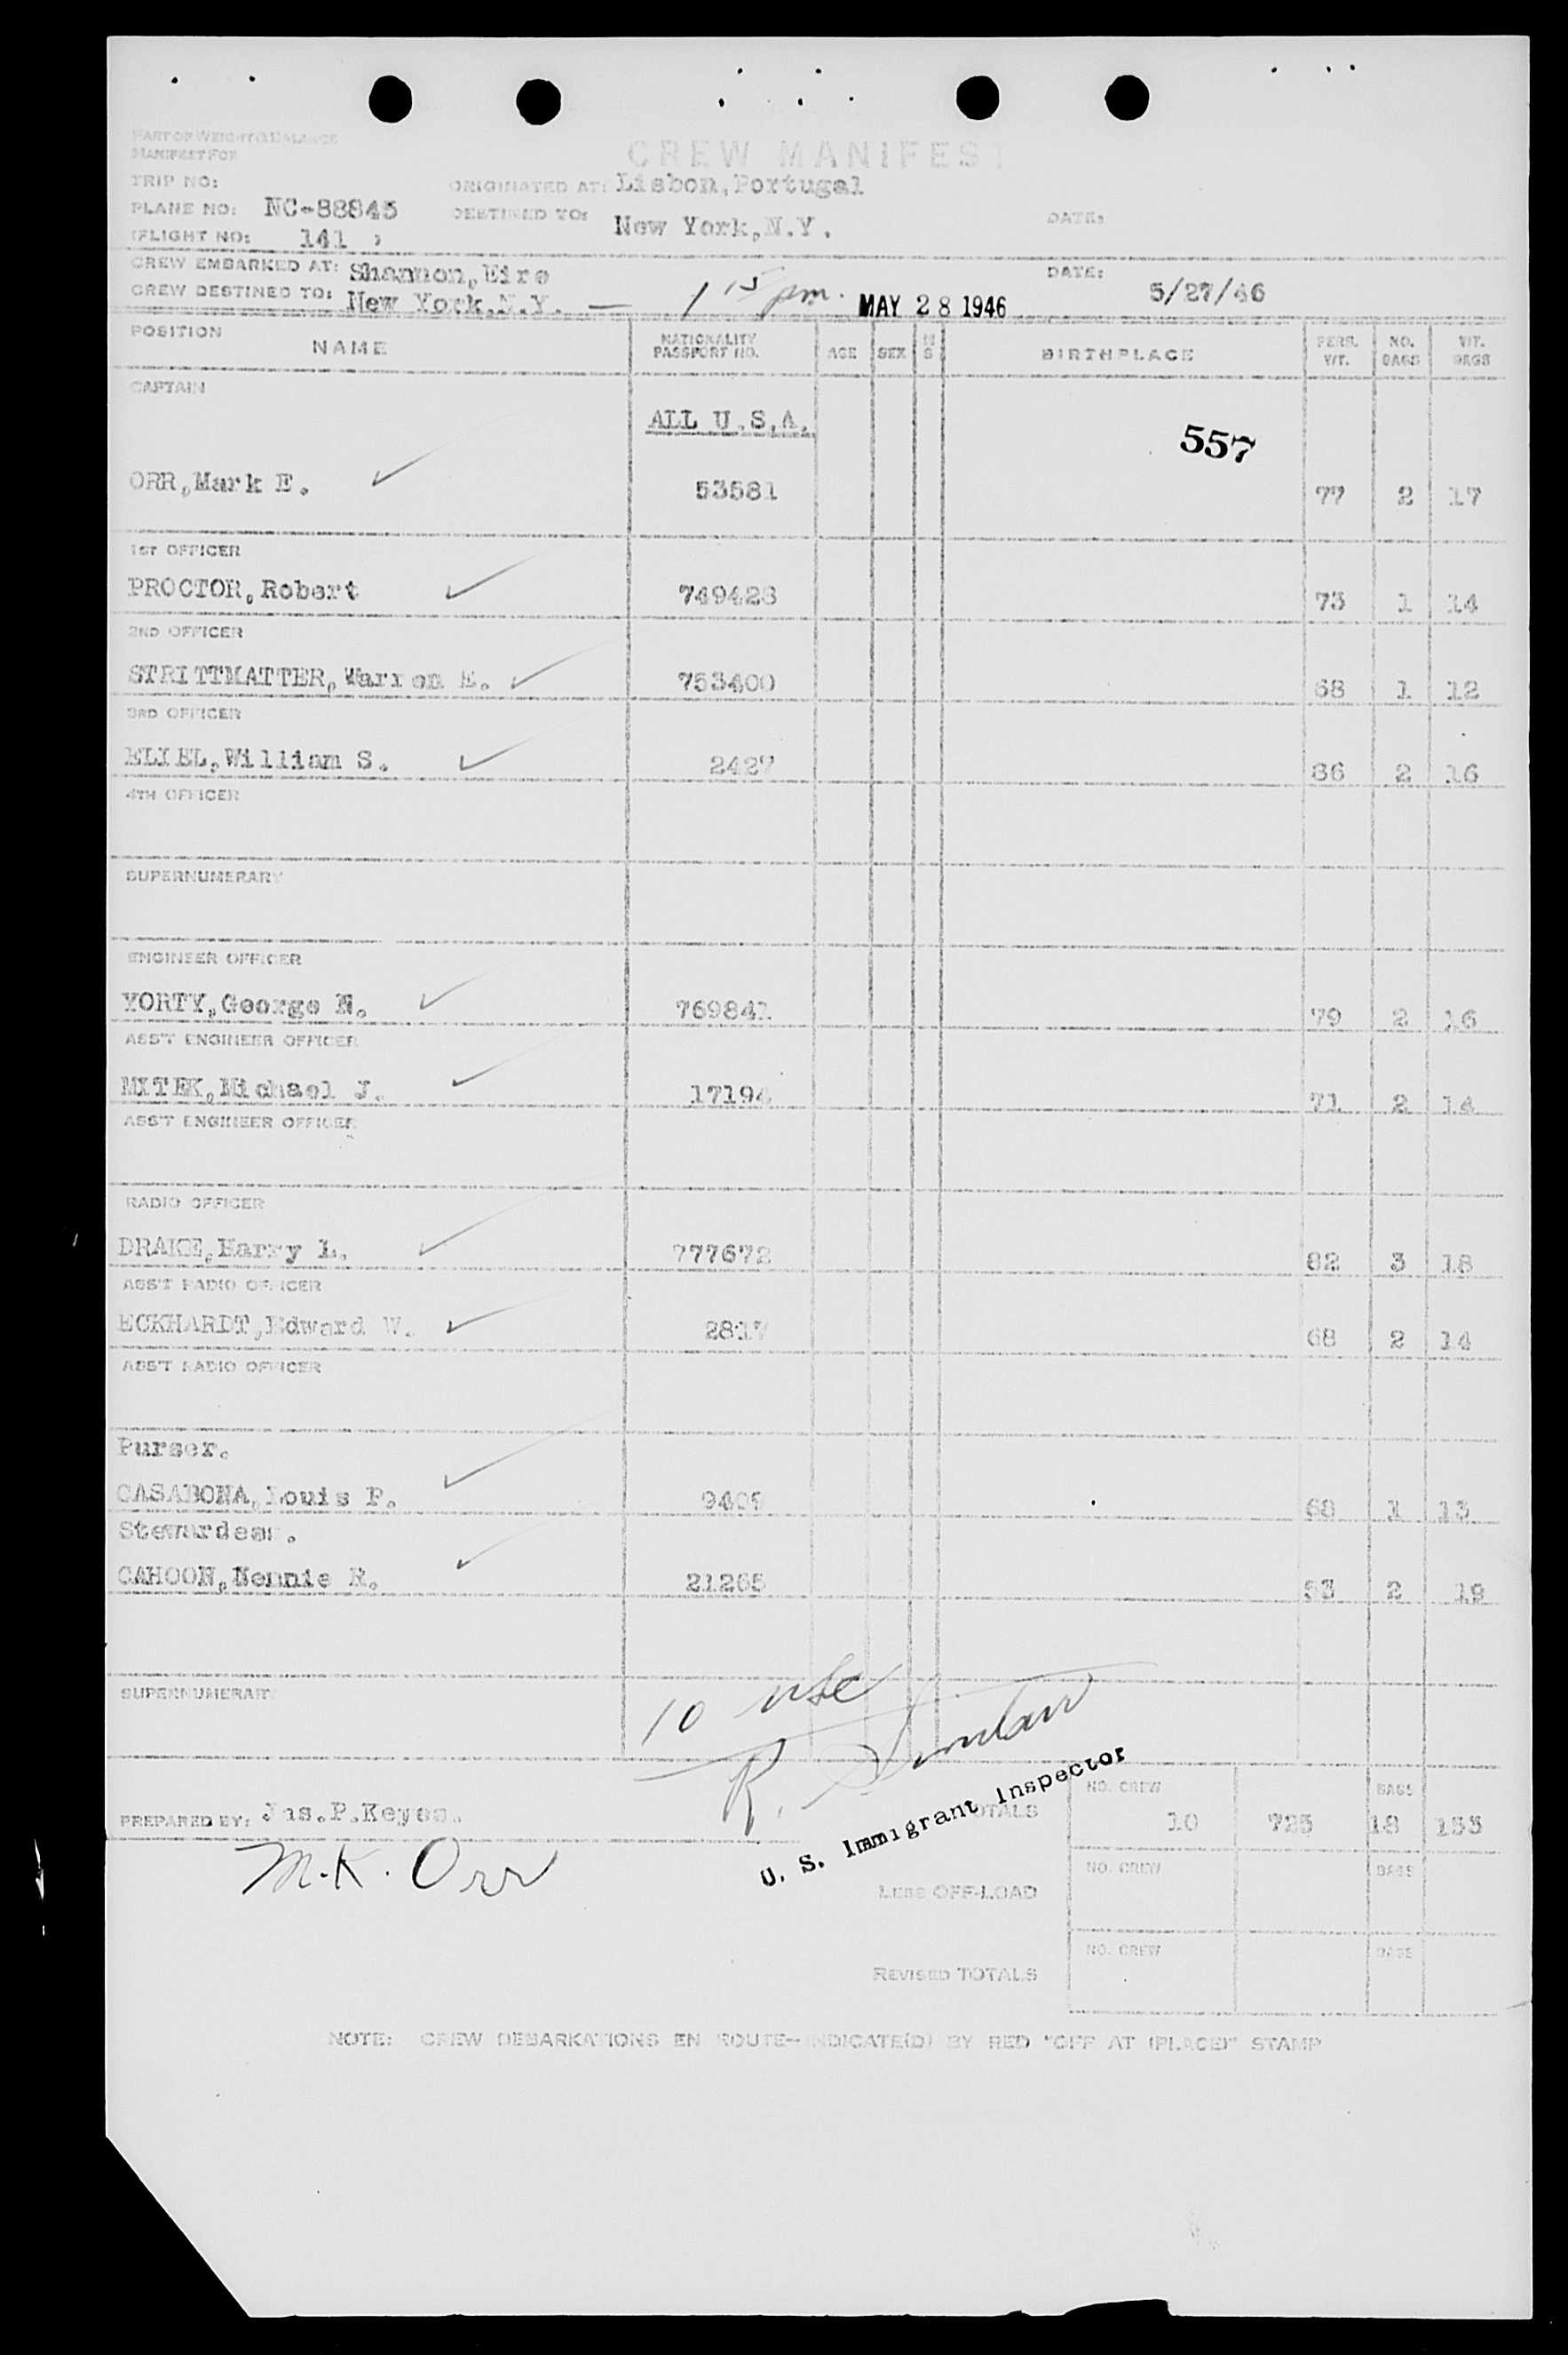 PART OF WEIGHT & BALANCE
MANIFEST FOR
CREW MANIFEST
TRIP NO:
ORIGINATED AT: Lisbon,Portugal
PLANE NO: NC-88845
DESTINED TO: New York,N.Y.
DATE:
FLIGHT NO: 141
CREW EMBARKED AT: Shannon,Eire
DATE: 5/27/46
CREW DESTINED TO: New York,N.Y. — 1 15 pm. MAY 28 1946
POSITION NAME NATIONALITY PASSPORT NO. AGE SEX M S BIRTHPLACE PERS. WT. NO. BAGS WT. BAGS
CAPTAIN
ALL U.S.A.
557
ORR,Mark E. 53581 77 2 17
1ST OFFICER
PROCTOR,Robert 749428 73 1 14
2ND OFFICER
STRITTMATTER,Warren E. 753400 68 1 12
3RD OFFICER
ELIEL,William S. 2427 86 2 16
4TH OFFICER
SUPERNUMERARY
ENGINEER OFFICER
YORTY,George N. 769841 79 2 16
ASS'T ENGINEER OFFICER
MITEK,Michael J. 17194 71 2 14
ASS'T ENGINEER OFFICER
RADIO OFFICER
DRAKE,Harry L. 777672 82 3 18
ASS'T RADIO OFFICER
ECKHARDT,Edward W. 2817 68 2 14
ASS'T RADIO OFFICER
Purser.
CASABONA,Louis P. 9409 68 1 13
Stewardess.
CAHOON,Nennie R. 21265 53 2 19
SUPERNUMERARY
10 USC
R.
U. S. Immigrant Inspector
PREPARED BY: Jas.P.Keyes.
TOTALS NO. CREW 10 725 BAGS 18 153
M.K. Orr
LESS OFF-LOAD NO. CREW BAGS
REVISED TOTALS NO. CREW BAGS
NOTE: CREW DEBARKATIONS EN ROUTE--INDICATE(D) BY RED "OFF AT (PLACE)" STAMP